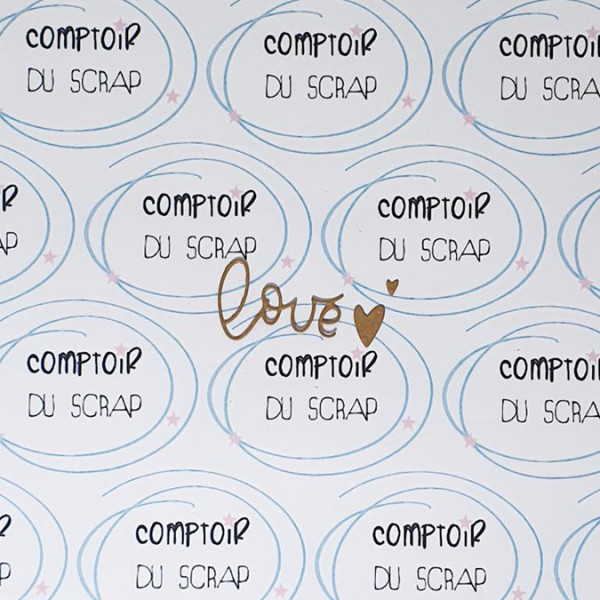 COMPTOIR
DU SCRAP
COMPTOIR
DU SCRAP
COMPTOIR
DU SCRAP
COMPTOIR
DU SCRAP
COMPTOIR
DU SCRAP
love
COMPTOIR
DU SCRAP
COMPTOIR
DU SCRAP
COMPTOIR
DU SCRAP
COMPTOIR
DU SCRAP
COMPTOIR
DU SCRAP